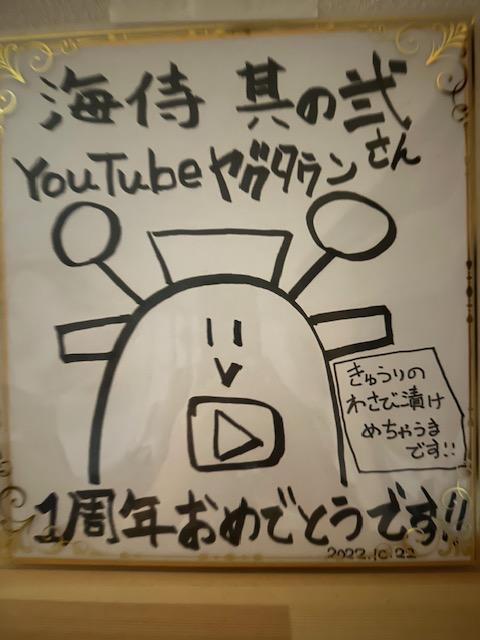 海侍 其の弐
さん
YouTube ヤグタウン
きゅうりの
わさび漬け
めちゃうま
です!!
1周年おめでとうです!!
2022.10.22